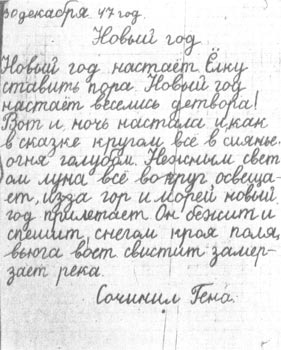 30 декабря 47 год.
Новый год
Новый год настаёт Ёлку
ставить пора Новый год
настаёт веселись детвора!
Вот и ночь настала и, как
в сказке кругом всё в сиянье
огня голубом. Нежным свет
ом луна всё вокруг освеща-
ет, изза гор и морей новый
год прилетает Он бежит и
спешит, снегом кроя поля,
вьюга воет свистит замер-
зает река.
Сочинил Гена.